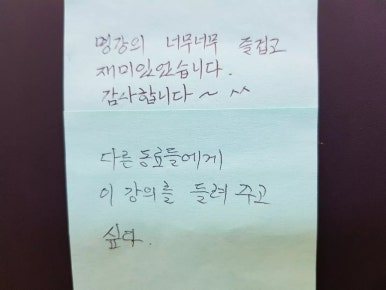 명강의 너무너무 즐겁고
재미있었습니다.
감사합니다 ~ ^^
다른 동료들에게
이 강의를 들려 주고
싶다.